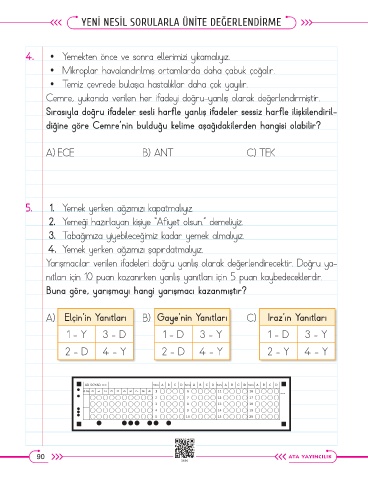 YENİ NESİL SORULARLA ÜNİTE DEĞERLENDİRME
4. • Yemekten önce ve sonra ellerimizi yıkamalıyız.
• Mikroplar havalandırılmış ortamlarda daha çabuk çoğalır.
• Temiz çevrede bulaşıcı hastalıklar daha çok yayılır.
Cemre, yukarıda verilen her ifadeyi doğru-yanlış olarak değerlendirmiştir.
Sırasıyla doğru ifadeler sesli harfle yanlış ifadeler sessiz harfle ilişkilendiril-
diğine göre Cemre'nin bulduğu kelime aşağıdakilerden hangisi olabilir?
A) ECE B) ANT C) TEK
5. 1. Yemek yerken ağzımızı kapatmalıyız.
2. Yemeği hazırlayan kişiye "Afiyet olsun." demeliyiz.
3. Tabağımıza yiyebileceğimiz kadar yemek almalıyız.
4. Yemek yerken ağzımızı şapırdatmalıyız.
Yarışmacılar verilen ifadeleri doğru yanlış olarak değerlendirecektir. Doğru ya-
nıtları için 10 puan kazanırken yanlış yanıtları için 5 puan kaybedeceklerdir.
Buna göre, yarışmayı hangi yarışmacı kazanmıştır?
A) Elçin'in Yanıtları B) Gaye'nin Yanıtları C) Iraz'ın Yanıtları
1 - Y 3 - D 1 - D 3 - Y 1 - D 3 - Y
2 - D 4 - Y 2 - D 4 - Y 2 - Y 4 - Y
90
ATA YAYINCILIK